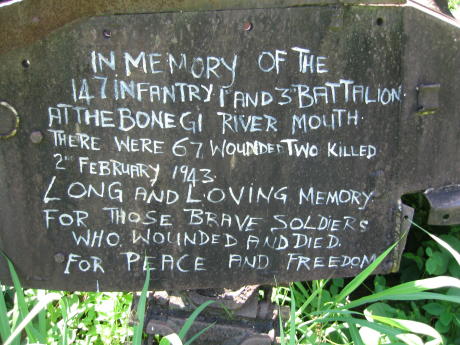 IN MEMORY OF THE
147 INFANTRY 1ST AND 3RD BATTALION.
AT THE BONEGI RIVER MOUTH.
THERE WERE 67, WOUNDED TWO KILLED
2ND FEBRUARY 1943.
LONG AND LOVING MEMORY.
FOR THOSE BRAVE SOLDIERS
WHO. WOUNDED AND DIED.
FOR PEACE AND FREEDOM